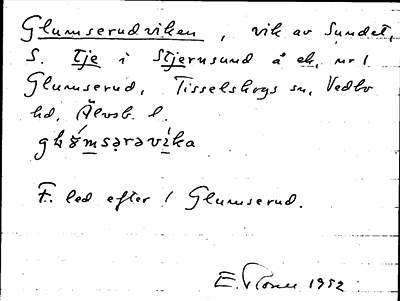 Glumserudviken, vik av Sundet,
S. Tje i Stjernsund å ek. nr 1
Glumserud, Tisselskogs sn, Vedbo
hd, Älvsb. l.
F. led efter 1 Glumserud.
E. 1952